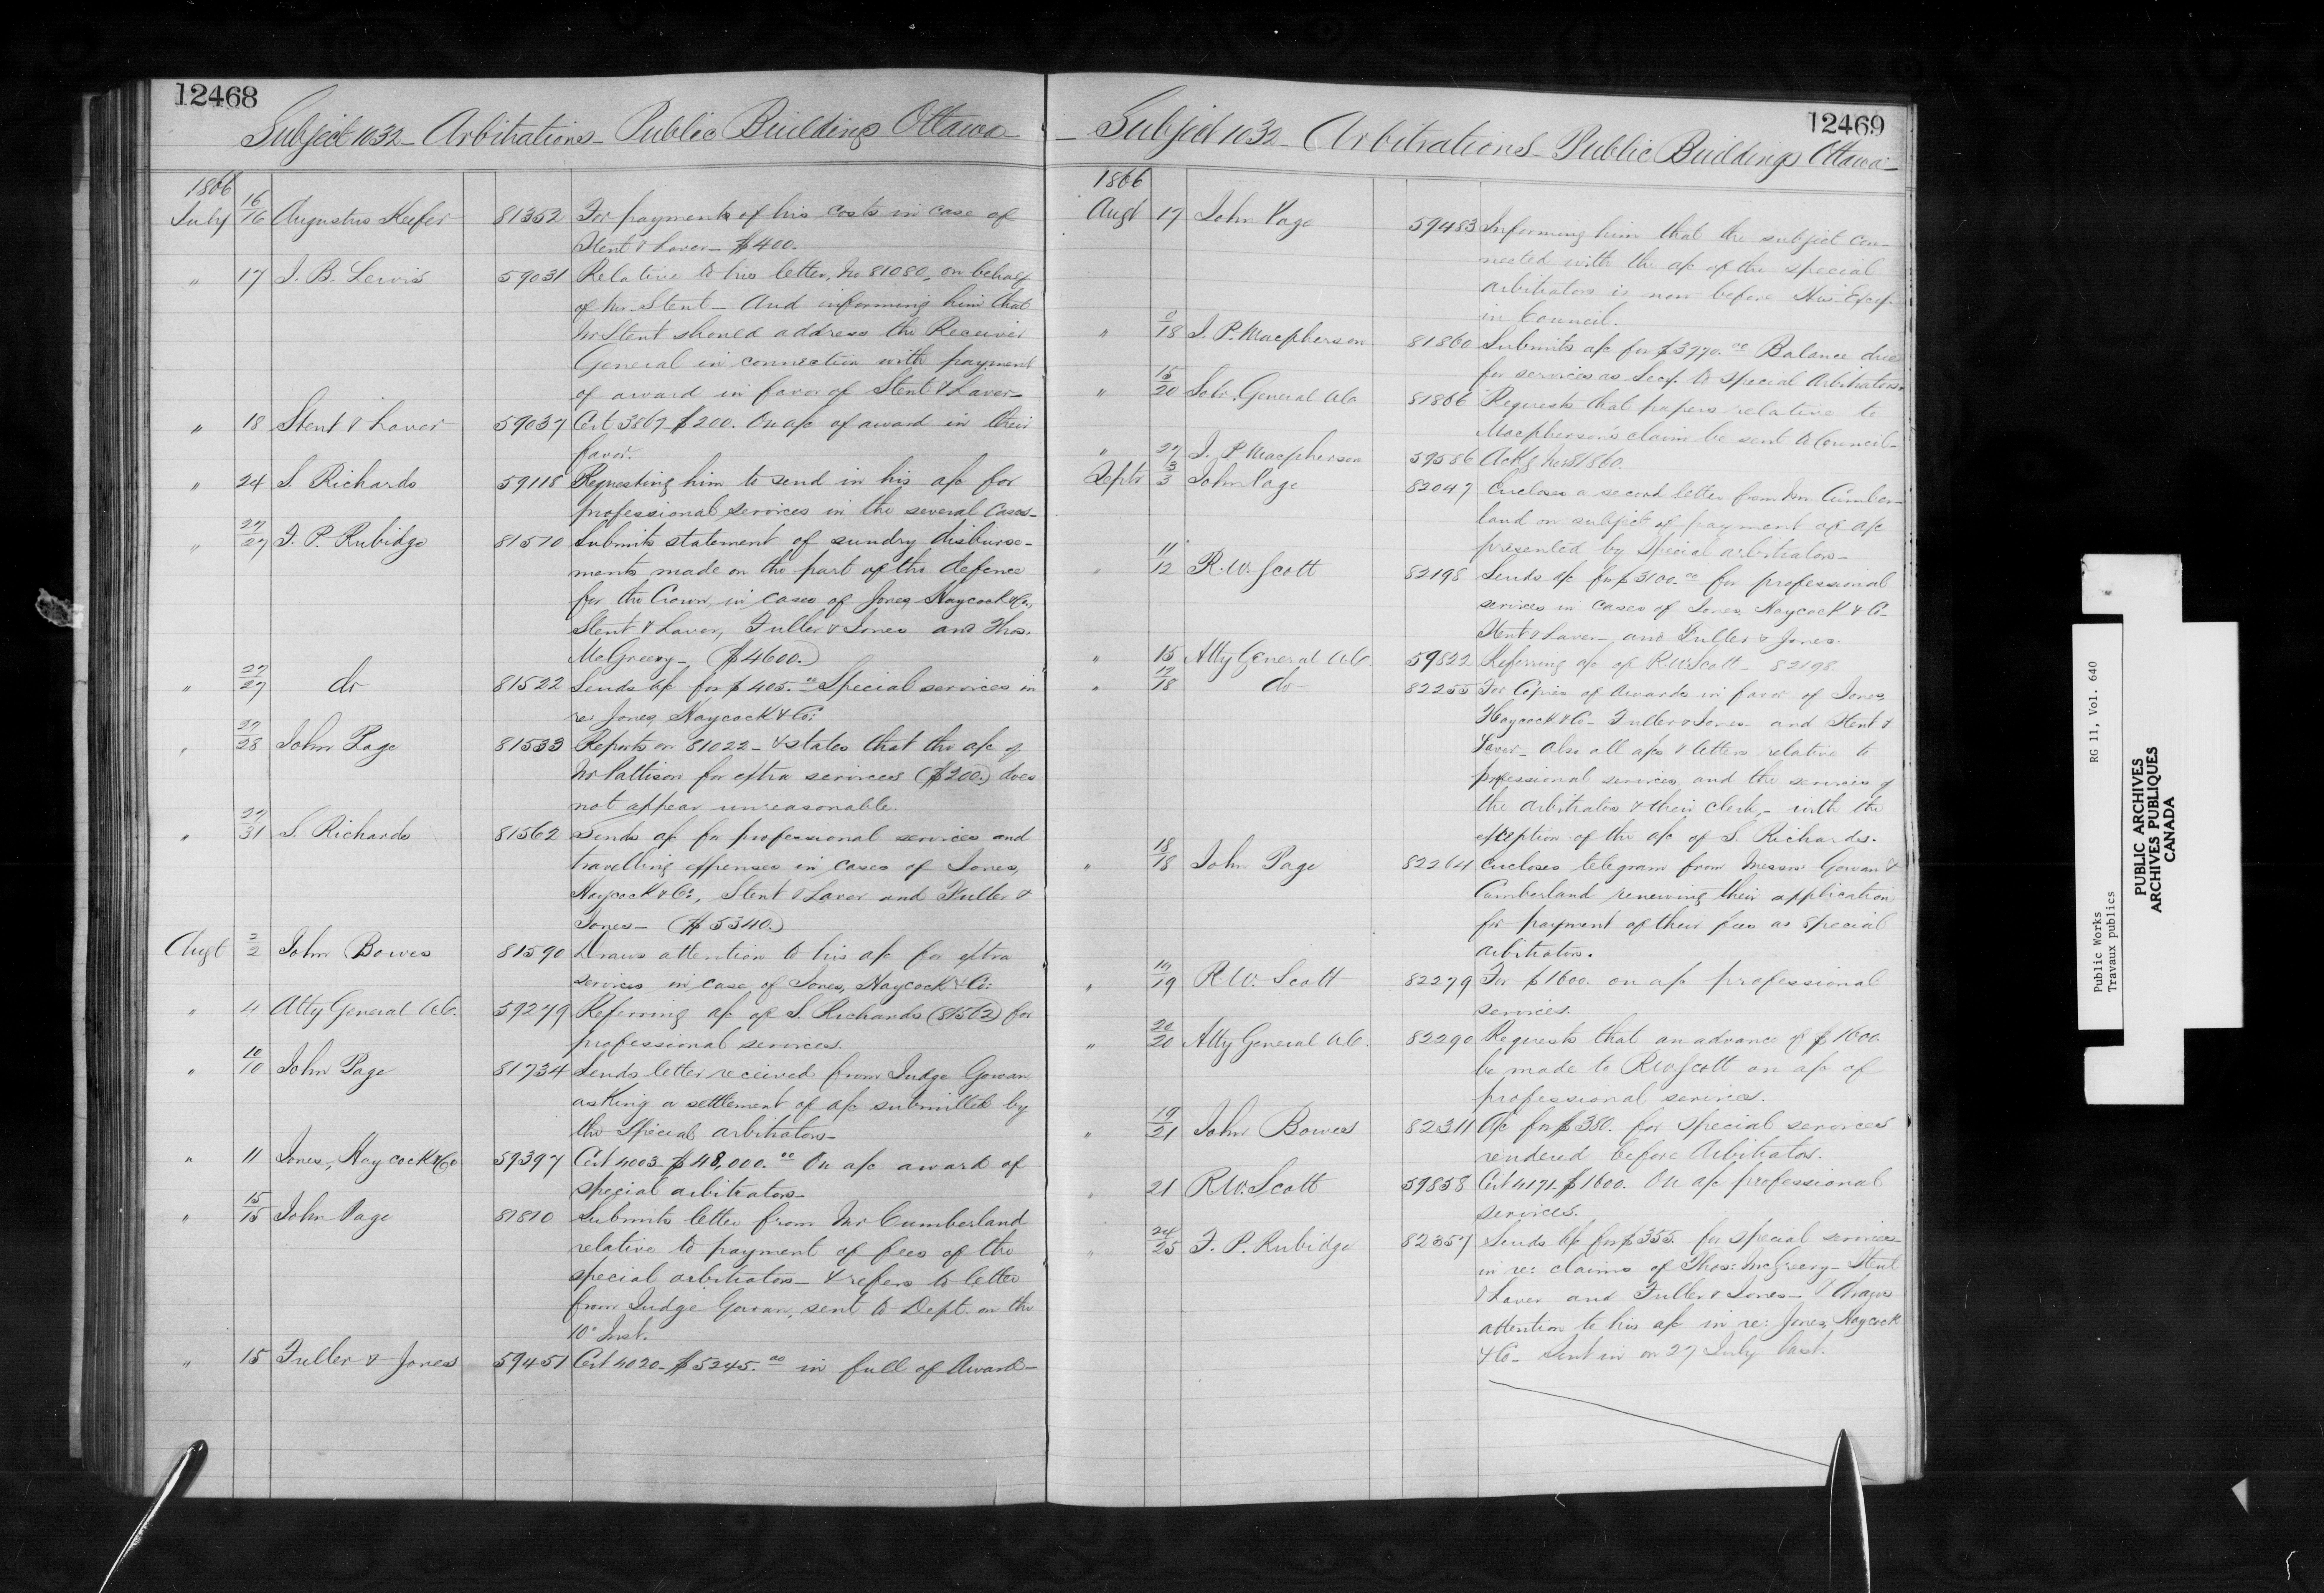 12468
Subject 1032 - Arbitrations - Public Buildings Ottawa
1866
July 16/16 Augustus Keefer 81352 For payment of his costs in case of
Stent & Laver - $400.
" 17 J. B. Lewis 59031 Relative to his letter, No 81080, on behalf
of Mr. Stent - And informing him that
Mr Stent should address the Receiver
General in connection with payment
of award in favor of Stent & Laver -
" 18 Stent & Laver 59037 Cert 3867 $200. On a/c of award in their
favor.
" 24 S. Richards 59118 Requesting him to send in his a/c for
professional services in the several Cases -
" 27/27 F. P. Rubidge 81510 Submits statement of sundry disburse-
ments made on the part of the defence
for the Crown, in cases of Jones, Haycock & Co.,
Stent & Laver, Fuller & Jones and Thos.
McGreevy - ($4600.)
" 27/27 do 81522 Sends a/c for $405.00 Special services in
re: Jones, Haycock & Co:
" 27/28 John Page 81533 Reports on 81022 - & states that the a/c of
Mr Pattison for extra services ($200.) does
not appear unreasonable.
" 27/31 S. Richards 81562 Sends a/c for professional services and
travelling expenses in cases of Jones,
Haycock & Co:, Stent & Laver and Fuller &
Jones - ($5340.)
Augt 2/2 John Bowes 81590 Draws attention to his a/c for extra
services in case of Jones, Haycock & Co:
" 4 Atty General U.C. 59279 Referring a/c of S. Richards (81562) for
professional services.
" 10/10 John Page 81734 Sends letter received from Judge Gowan
asking a settlement of a/c submitted by
the Special arbitrators -
" 11 Jones, Haycock & Co 59397 Cert 4003 $48,000.00 On a/c award of
special arbitrators -
" 15/15 John Page 81810 Submits letter from Mr Cumberland
relative to payment of fees of the
special arbitrators - & refers to letter
from Judge Gowan, sent to Dept. on the
10° Inst.
" 15 Fuller & Jones 59451 Cert 4020 - $5245.00 in full of Award -
12469
Subject 1032 - Arbitrations - Public Buildings Ottawa -
1866
Augt 17 John Page 59483 Informing him that the subject con-
nected with the a/c of the special
arbitrators is now before His Excy.
in Council.
" /18 J. P. Macpherson 81860 Submits a/c for $3970.00 Balance due
for services as Secy. to Special Arbitrators.
" 15/20 Solr. General U.C. 81866 Requests that papers relative to
Macpherson's claim be sent to Council -
" 27 J. P. Macpherson 59556 Ackg No 81860.
Septr 3/3 John Page 82047 Encloses a second letter from Mr. Cumber-
land on subject of payment of a/c
presented by Special arbitrators -
" 11/12 R. W. Scott 82198 Sends a/c for $3100.00 for professional
services in cases of Jones, Haycock & Co -
Stent & Laver - and Fuller & Jones.
" 15 Atty General U.C. 59822 Referring a/c of R. W. Scott - 82198.
" 17/18 do 82255 For Copies of Awards in favor of Jones,
Haycock & Co - Fuller & Jones and Stent &
Laver - Also all a/cs & letters relative to
professional services, and the services of
the arbitrators & their Clerk, - with the
exception of the a/c of S. Richards.
" 18/18 John Page 82264 Encloses telegram from Messrs Gowan &
Cumberland renewing their application
for payment of their fees as special
arbitrators.
" 19/19 R. W. Scott 82279 For $1600. on a/c professional
services.
" 20/20 Atty General U.C. 82290 Requests that an advance of $1600.
be made to R. W. Scott on a/c of
professional services.
" 19/21 John Bowes 82311 A/c for $380. for special services
rendered before Arbitrators.
" 21 R. W. Scott 59858 Cert 4171 $1600. On a/c professional
services.
" 24/25 F. P. Rubidge 82357 Sends a/c for $355. for special services
in re: claims of Thos: McGreevy - Stent
& Laver and Fuller & Jones - & draws
attention to his a/c in re: Jones, Haycock
& Co - sent in on 27 July last.
Public Works RG 11, Vol. 640
Travaux publics
PUBLIC ARCHIVES
ARCHIVES PUBLIQUES
CANADA